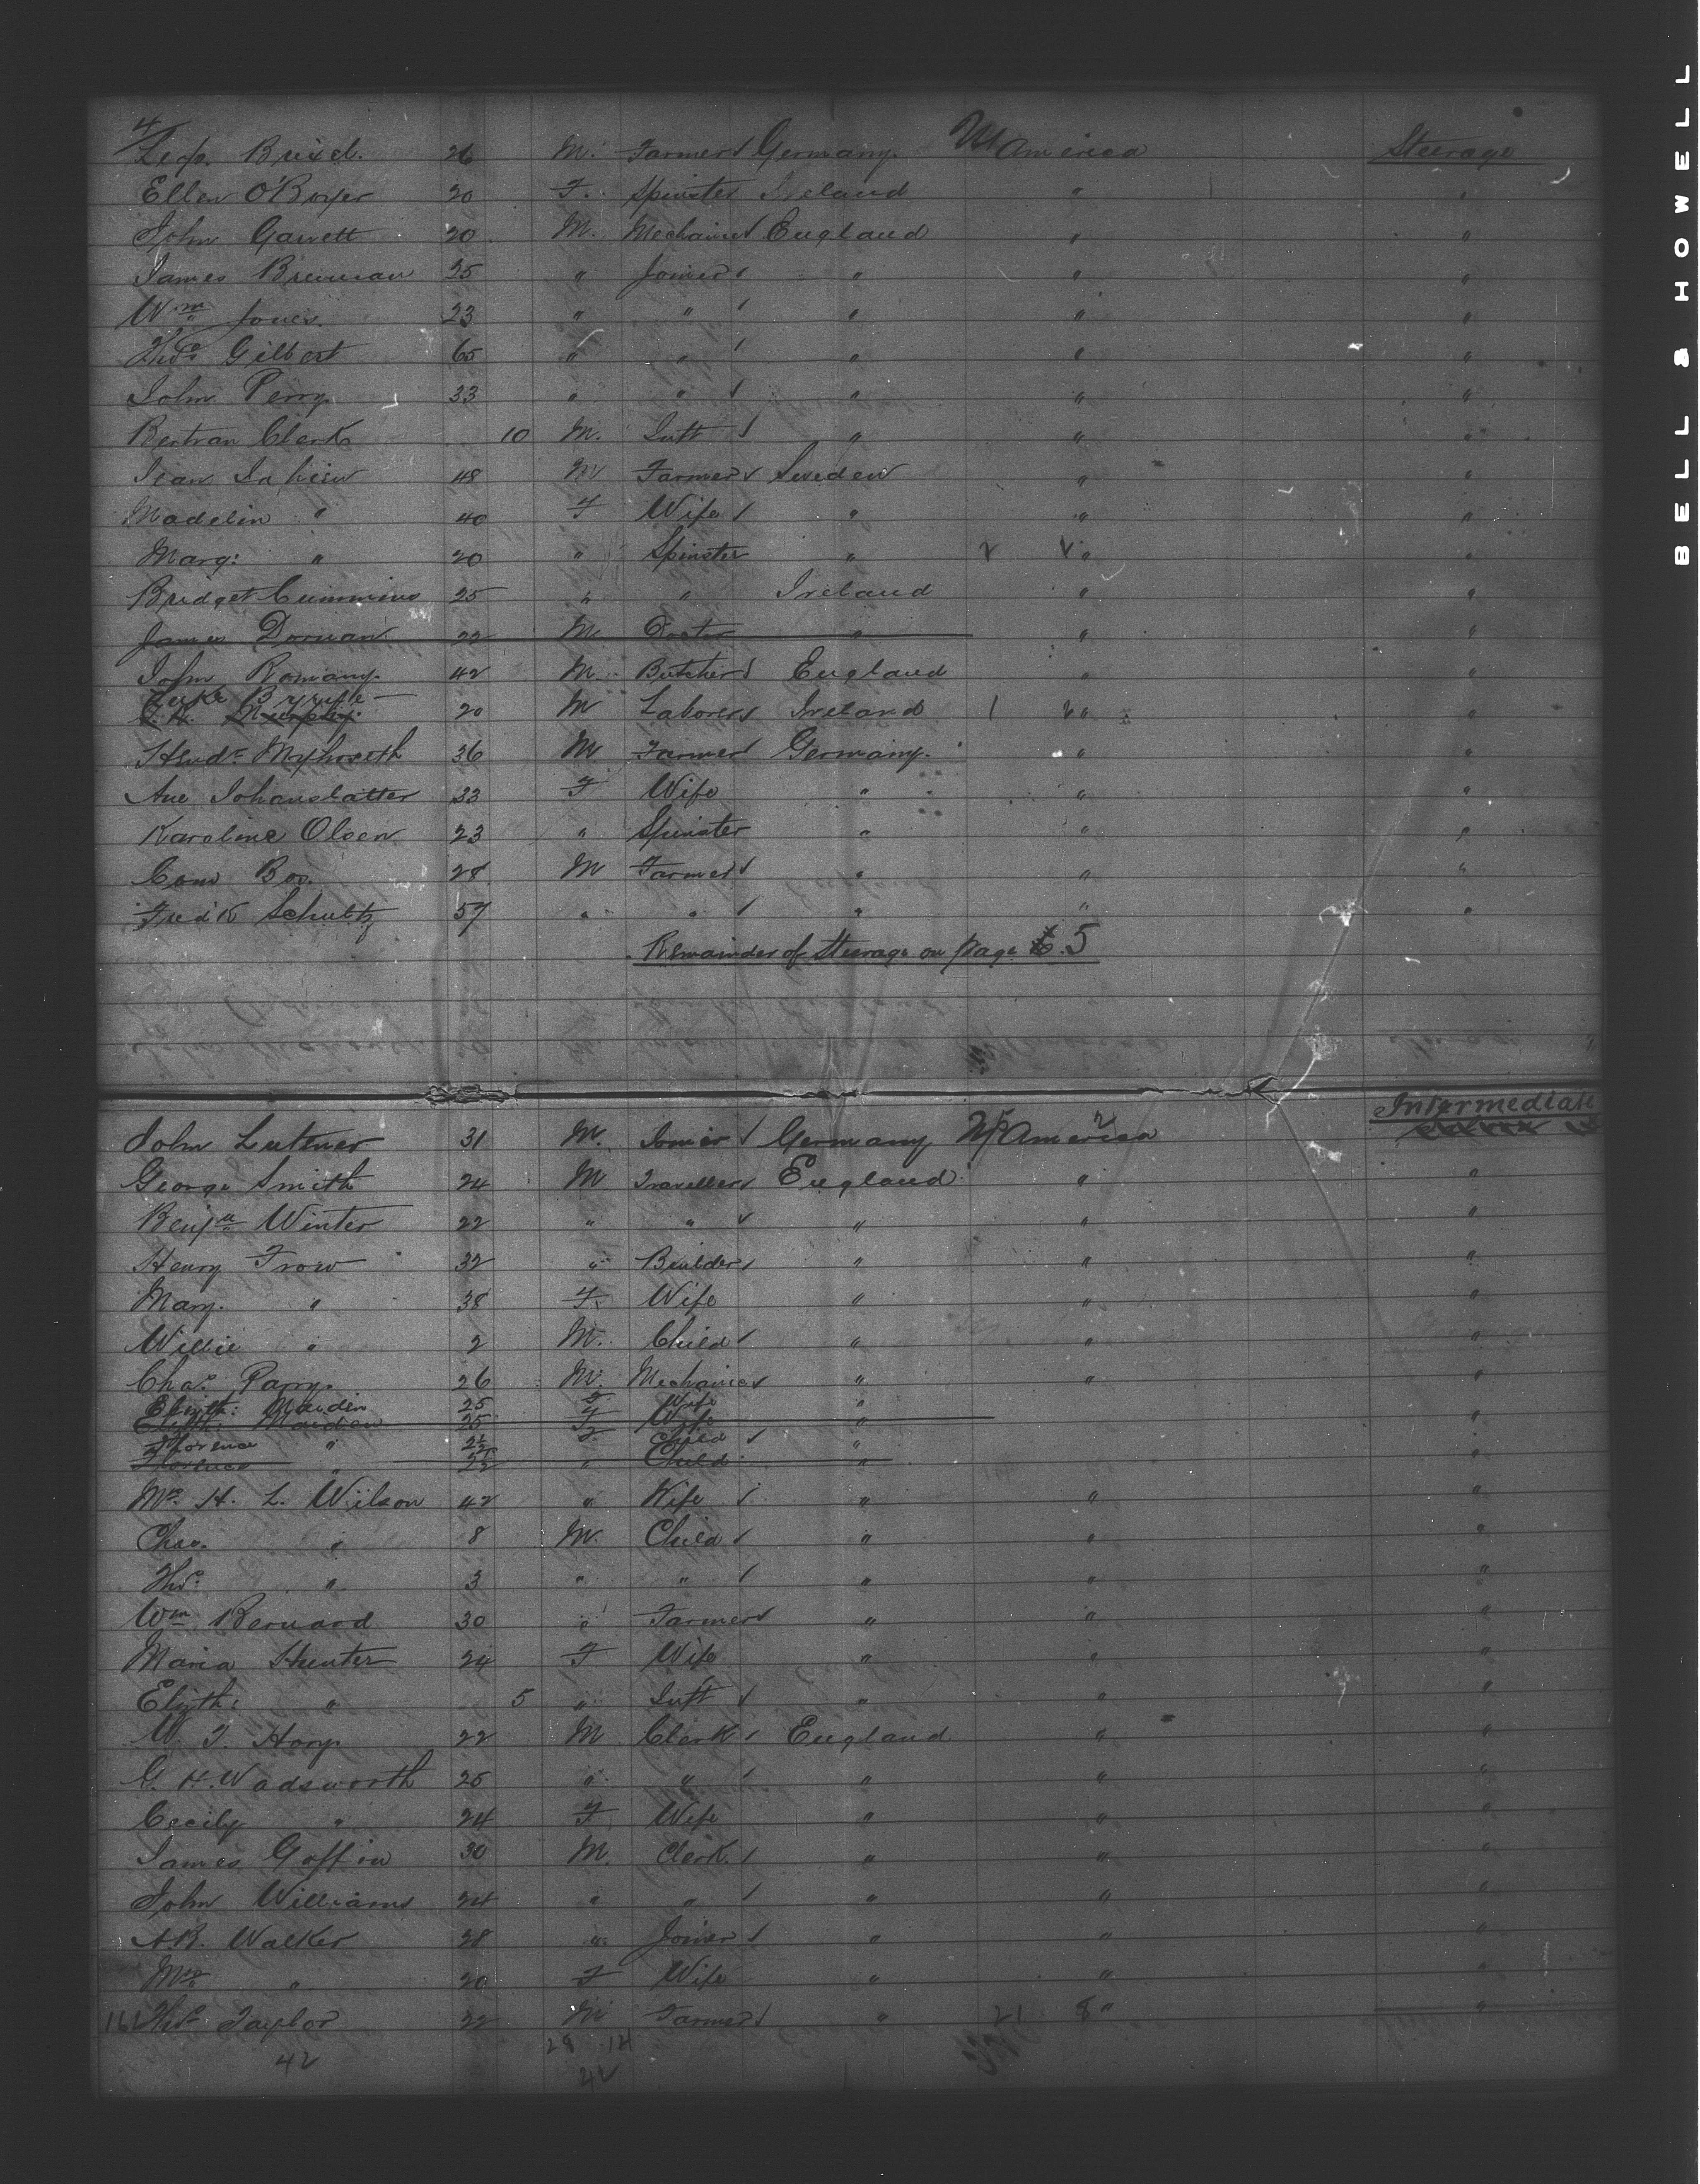 4
Leop. Brixel. 26 M. Farmer Germany. US America Steerage
Ellen O'Boyer 20 F. Spinster Ireland " "
John Garrett 20 M. Mechanic England " "
James Brennan 25 " Joiner " " "
Wm Jones. 23 " " " " "
Thos. Gilbert 65 " " " " "
John Perry 33 " " " " "
Bertran Clerk 10 M. Inft " " "
Jean 48 M Farmer Sweden " "
Madelin " 40 F Wife " " "
Marg: " 20 " Spinster " " "
Bridget Cummins 25 " " Ireland " "
James Dornan 22 M. " " "
John Romany. 42 M. Butcher England " "
Luke Byrne
Murphy. 20 M Laborer Ireland 1 " "
36 M Farmer Germany. " "
Ane Johanslatter 33 F Wife " " "
Karoline Olsen 23 " Spinster " " "
Bos. 28 M Farmer " " "
Fredk Schultz 57 " " " " "
Remainder of Steerage on page 5
Intermediate
John Lutner 31 M. Joiner Germany US America
George Smith 24 M Traveller England " "
Benjn Winter 22 " " " " "
Henry Trow 32 " Builder " " "
Mary. " 38 F. Wife " " "
Willie " 2 M. Child " " "
Chas. Parry. 26 M. Mechanic " "
Elizth: Maiden 25 F Wife "
Elizth Maiden 25 F Wife "
Florence " 2½ F. Child "
Florence " 2½ " Child "
Mrs. H. L. Wilson 42 " Wife " " "
Chas. " 8 M. Child " " "
Thos. " 3 " " " " "
Wm Bernard 30 " Farmer " " "
Maria Hunter 24 F Wife " " "
Elizth: " 5 " Inft " " "
W. T. Hory. 22 M Clerk England " "
G. H. Wadsworth 25 " " " " "
Cecily " 24 F Wife " " "
James Goffin 30 M. Clerk. " " "
John Williams 24 " " " " "
A.B. Walker 28 " Joiner " " "
Mrs " 20 F Wife " " "
Thos Taylor 22 M Farmer " 21 8 " "
42 28 14
42
BELL & HOWELL